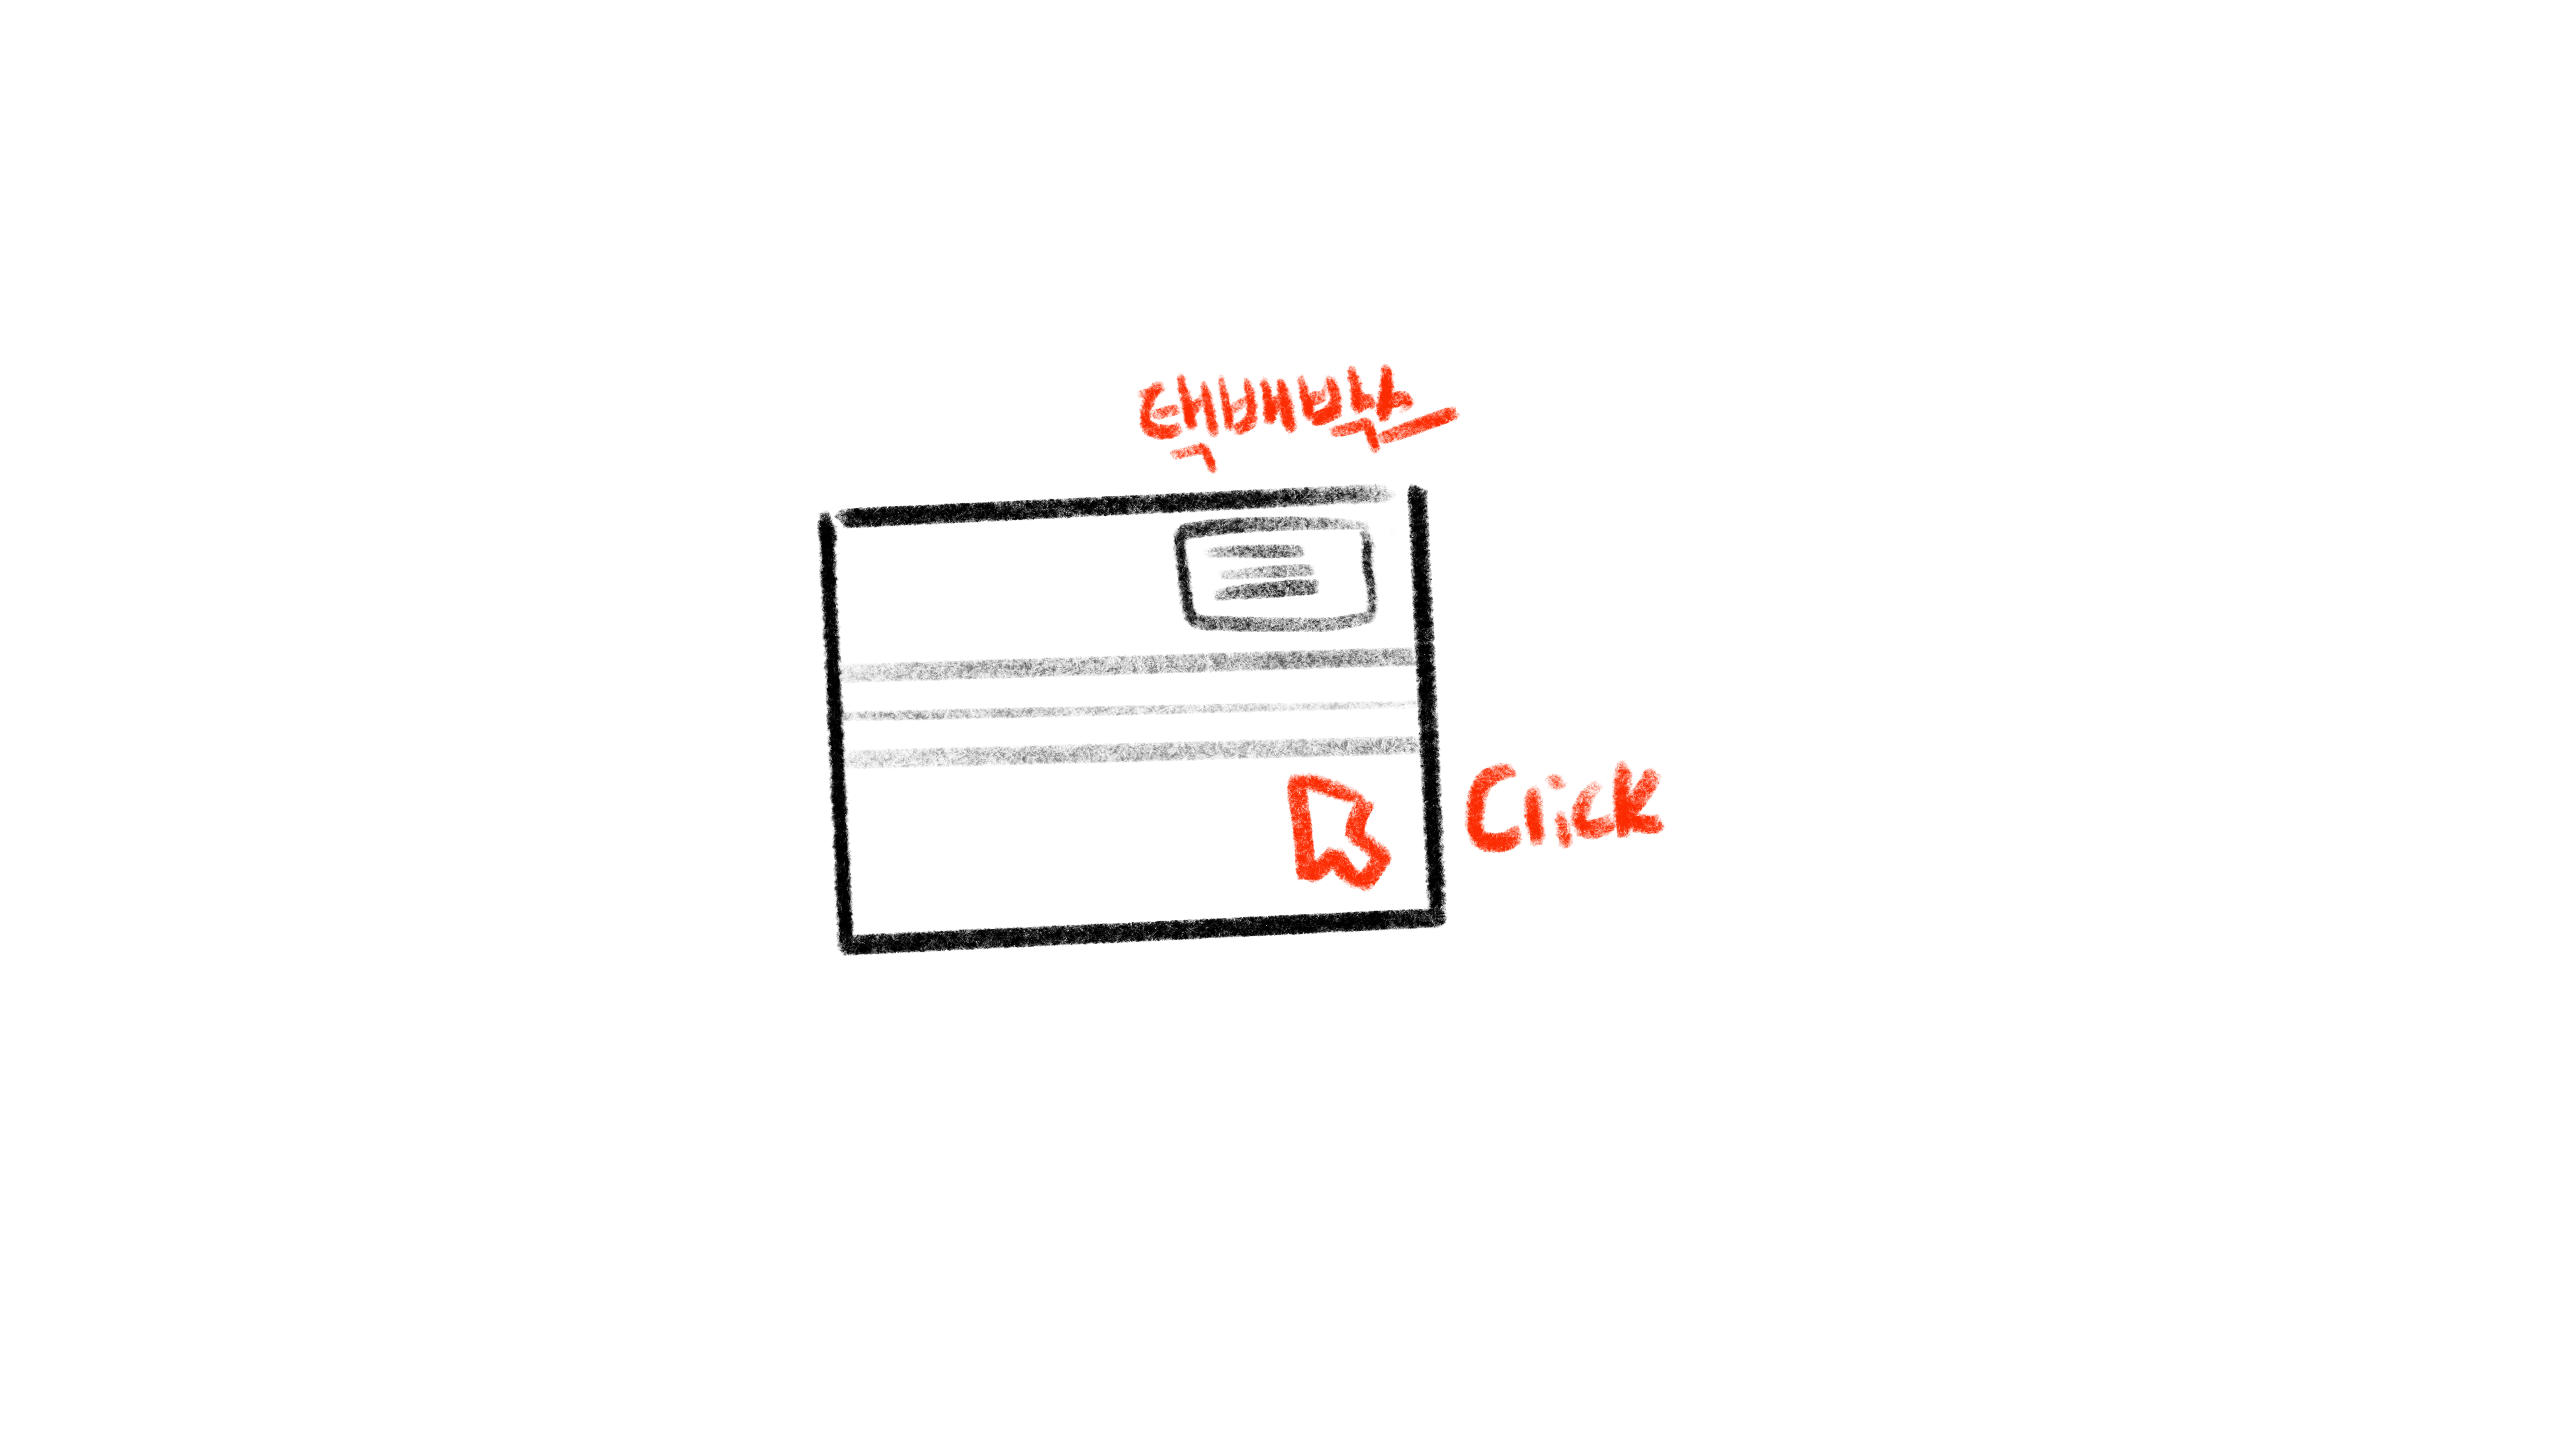 택배박스
Click